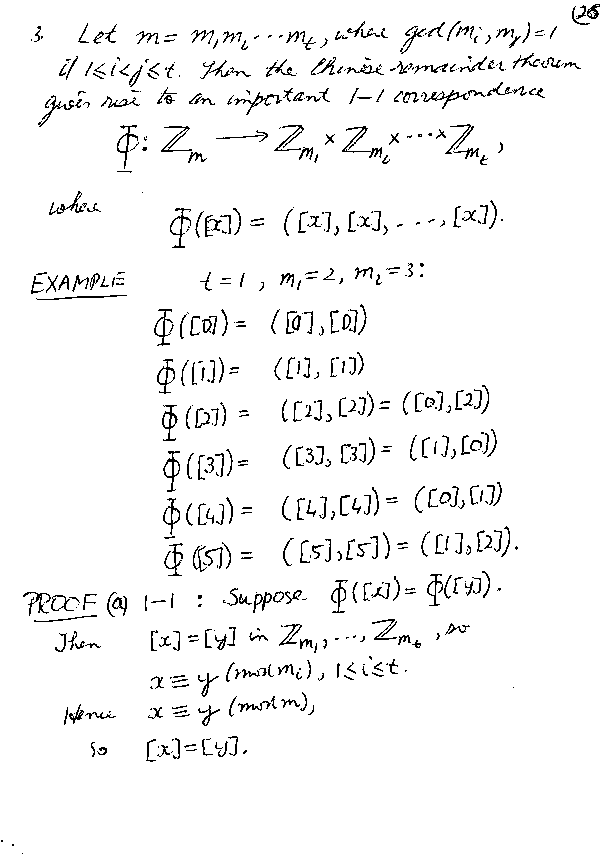 26
3. Let m = m₁m₂...mₜ, where gcd(mᵢ,mⱼ)=1
if 1≤i<j≤t. Then the Chinese remainder theorem
gives rise to an important 1-1 correspondence
Φ: ℤₘ ⟶ ℤₘ₁ × ℤₘ₂ × ... × ℤₘₜ,
where
Φ([x]) = ([x], [x], ..., [x]).
EXAMPLE t=1, m₁=2, m₂=3:
Φ([0]) = ([0],[0])
Φ([1]) = ([1],[1])
Φ([2]) = ([2],[2]) = ([0],[2])
Φ([3]) = ([3],[3]) = ([1],[0])
Φ([4]) = ([4],[4]) = ([0],[1])
Φ([5]) = ([5],[5]) = ([1],[2]).
PROOF (a) 1-1 : Suppose Φ([x]) = Φ([y]).
Then [x]=[y] in ℤₘ₁,...,ℤₘₜ, so
x ≡ y (mod mᵢ), 1≤i≤t.
Hence x ≡ y (mod m),
so [x]=[y].